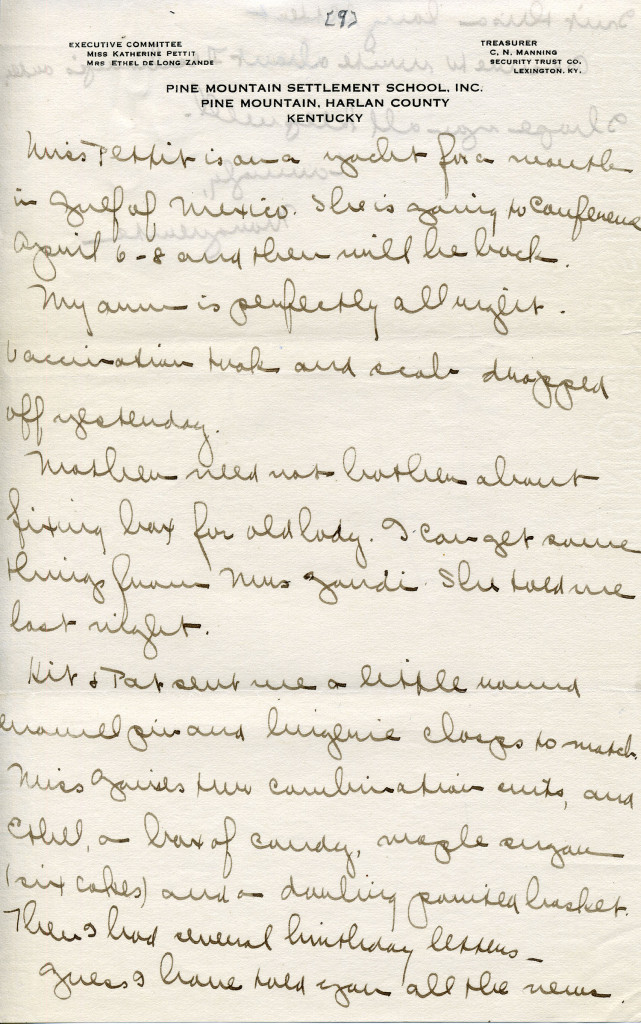 [9]
EXECUTIVE COMMITTEE
MISS KATHERINE PETTIT
MRS ETHEL DE LONG ZANDE
TREASURER
C. N. MANNING
SECURITY TRUST CO.
LEXINGTON, KY.
PINE MOUNTAIN SETTLEMENT SCHOOL, INC.
PINE MOUNTAIN, HARLAN COUNTY
KENTUCKY
Miss Pettit is on a yacht for a month
in Gulf of Mexico. She is going to Conference
April 6-8 and then will be back.
My arm is perfectly all right.
Vaccination took and scab dropped
off yesterday.
Mother need not bother about
fixing box for old lady. I can get some
things from Mrs Zandi. She told me
last night.
Kit & Pat sent me a little round
enamel pin and lingerie clasps to match.
Miss Gaines two combination suits, and
Ethel, a box of candy, maple sugar
(six cakes) and a darling painted basket.
Then I had several birthday letters -
Guess I have told you all the news